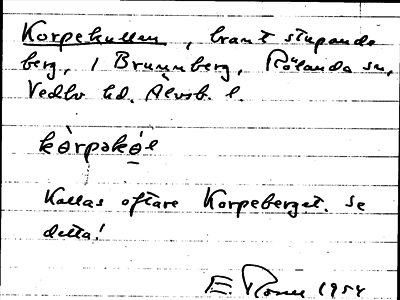 Korpekullen, brant stupande
berg, i Brunnberg, Rölanda sn,
Vedbo hd. Älvsb. l.
kòrpəkál
Kallas oftare Korpeberget. Se
detta!
E. 1954